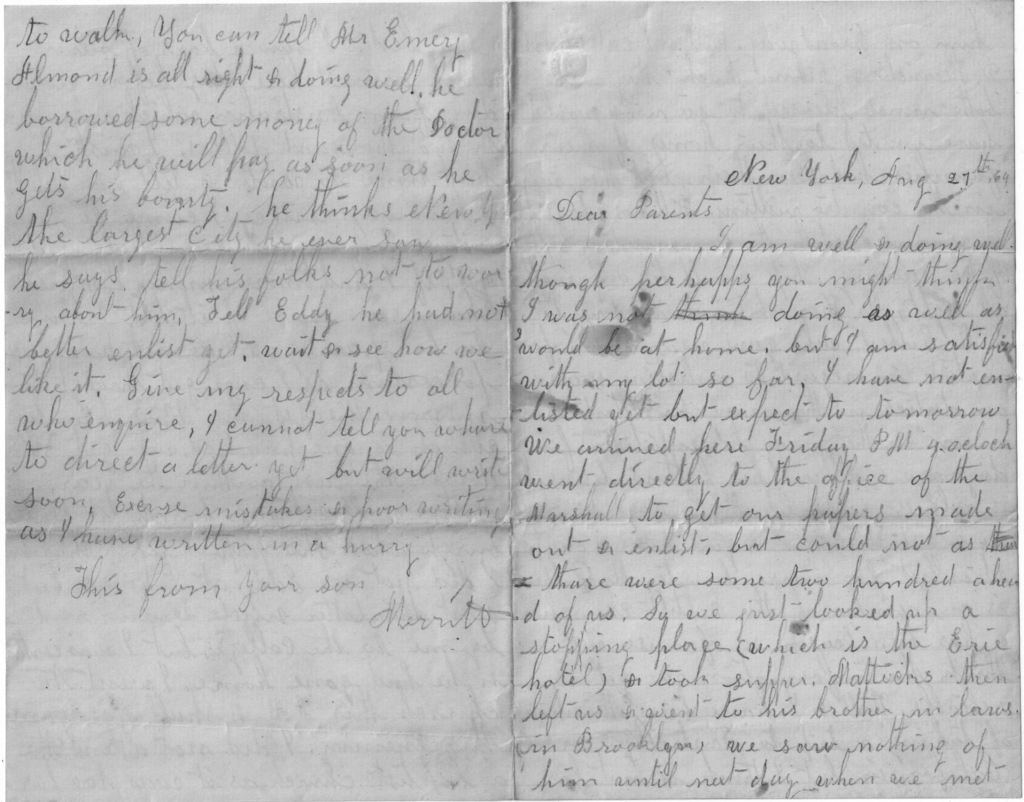 to walk, You can tell Mr Emery
Almond is all right & doing well. he
borrowed some money of the Doctor
which he will pay as soon as he
gets his bounty. he thinks New Y
the largest City he ever saw
he says tell his folks not to wor
-ry about him, Tell Eddy he had not
better enlist yet. wait & see how we
like it. Give my respects to all
who enquire, I cannot tell you whare
to direct a letter yet but will write
soon, Excuse mistakes & poor writing
as I have written in a hurry
This from Your son
Merritt
New York, Aug 27th, 64
Dear Parents
I am well & doing well.
though perhapps you might think
I was not think doing as well as
I would be at home. but I am satisfied
with my lot so far, I have not en-
listed yet but expect to tomorrow
We arrived here Friday PM 4.oclock
went directly to the office of the
Marshall to get our papers made
out & enlist. but could not as
thare were some two hundred ahea
d of us. So we just looked up a
stopping place (which is the Erie
hotel) & took supper. Matticks then
left us & went to his brother in laws.
(in Brooklyn) we saw nothing of
him until next day when we met